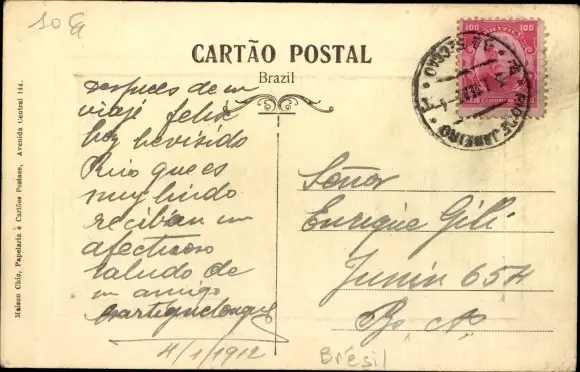 10 €
CARTÃO POSTAL
Brazil
100 BRAZIL 100
REIS
RIO DE JANEIRO
Maison Chic, Papelaria e Cartões Postaes, Avenida Central 144.
despues de un
viaje feliz
hoy he visido
Rio que es
muy lindo
reciban un
afectuoso
saludo de
un amigo
4/1/1912
Señor
Enrique Gili
Junin 654
Bs As
Brésil